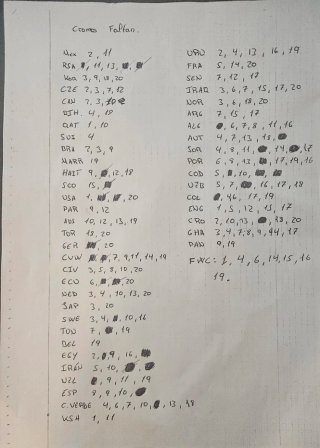 Cromos Faltan.
Mex 2, 11
RSA 11, 13,
Kor 3, 9, 18, 20
CZE 2, 3, 7, 12
CAN 2, 3, 10
BIH. 4, 18
QAT 1, 10
SUI 4
BRA 2, 3, 9
MARR 19
HAITI 9, 12, 18
SCO 15,
USA 1, 20
PAR 9, 12
AUS 10, 12, 13, 19
TUR 18, 20
GER 20
CUW 7, 9, 11, 14, 19
CIV 3, 5, 8, 10, 20
ECU 6, 20
NED 3, 4, 10, 13, 20
JAP 3, 20
SWE 3, 4, 10, 16
TUN 7, 19
BEL 19
EGY 2, 9, 16,
IRÁN 5, 10,
NZL 9, 11, 19
ESP 8, 9, 10,
C.VERDE 4, 6, 7, 10, 13, 18
KSA 1, 11
URU 2, 4, 13, 16, 19
FRA 5, 14, 20
SEN 7, 12, 17
IRAQ 3, 6, 7, 15, 17, 20
NOR 3, 6, 18, 20
ARG 7, 15, 17
ALG 6, 7, 8, 11, 16
AUT 4, 7, 13, 18
JOR 4, 8, 11, 14, 17
POR 6, 8, 13, 17, 19, 16
COD 5, 10,
UZB 5, 7, 16, 17, 18
COL 16, 17, 19
ENG 1, 5, 12, 13, 17
CRO 2, 10, 13, 18, 20
GHA 3, 4, 7, 8, 9, 14, 17
PAN 9, 19
FWC: 1, 4, 6, 14, 15, 16
19.